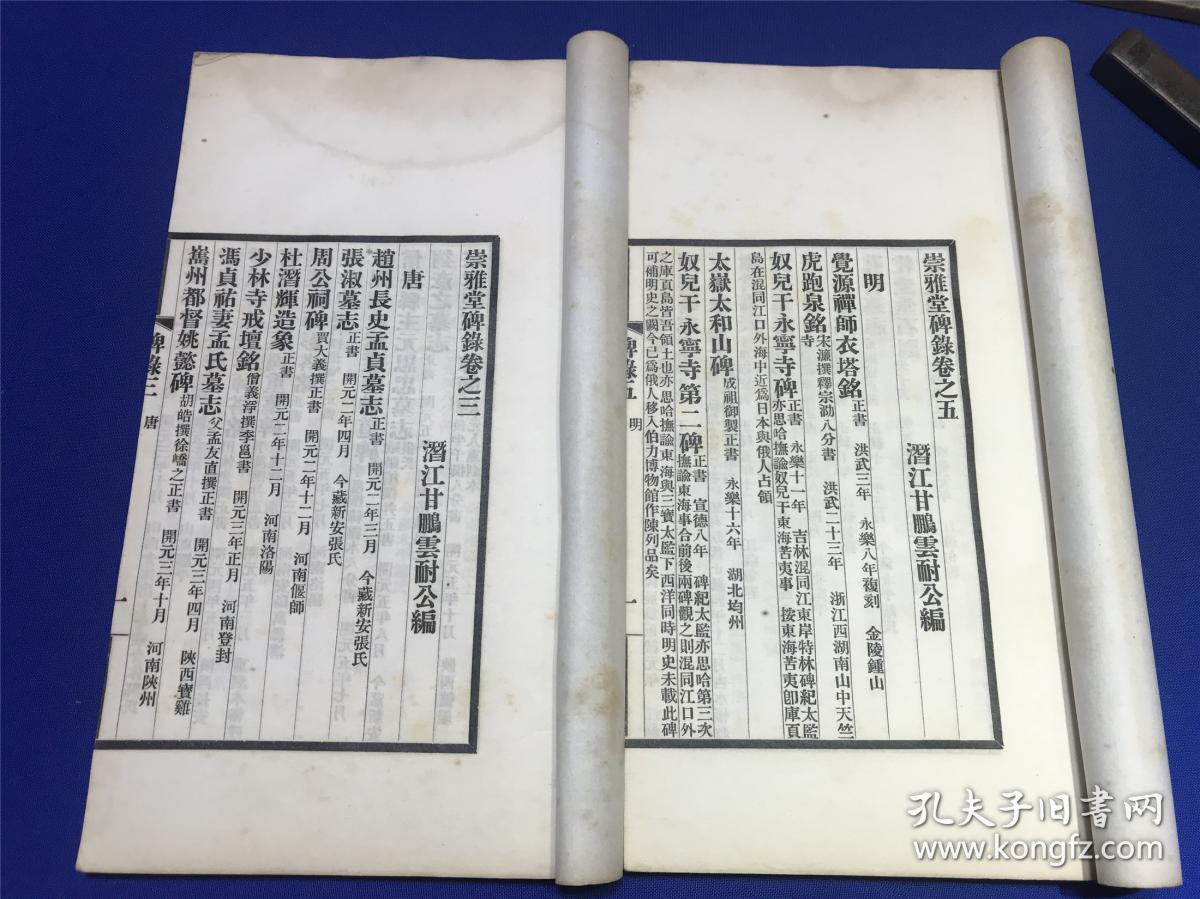 崇雅堂碑錄卷之五
潛江甘鵬雲耐公編
明
覺源禪師衣塔銘 正書 洪武三年 永樂八年複刻 金陵鍾山
虎跑泉銘 宋濂撰釋宗泐八分書 洪武二十三年 浙江西湖南山中天竺寺
奴兒干永寧寺碑 正書 永樂十一年 吉林混同江東岸特林碑紀太監亦思哈撫諭奴兒干東海苦夷事 按東海苦夷卽庫頁島在混同江口外海中近爲日本與俄人占領
太嶽太和山碑 成祖御製正書 永樂十六年 湖北均州
奴兒干永寧寺第二碑 正書 宣德八年 碑紀太監亦思哈第三次撫諭東海事合前後兩碑觀之則混同江口外之庫頁島皆吾領土也亦思哈撫諭東海與三寶太監下西洋同時明史未載此碑可補明史之闕今已爲俄人移入伯力博物館作陳列品矣
碑錄五 明 一
崇雅堂碑錄卷之三
潛江甘鵬雲耐公編
唐
趙州長史孟貞墓志 正書 開元二年三月 今藏新安張氏
張淑墓志 正書 開元二年四月 今藏新安張氏
周公祠碑 賈大義撰正書 開元二年十二月 河南偃師
杜潛輝造象 正書 開元二年十二月 河南洛陽
少林寺戒壇銘 僧義淨撰李邕書 開元三年正月 河南登封
馮貞祐妻孟氏墓志 父孟友直撰正書 開元三年四月 陝西寶雞
嶲州都督姚懿碑 胡皓撰徐嶠之正書 開元三年十月 河南陝州
碑錄三 唐 一
孔夫子旧书网
www.kongfz.com